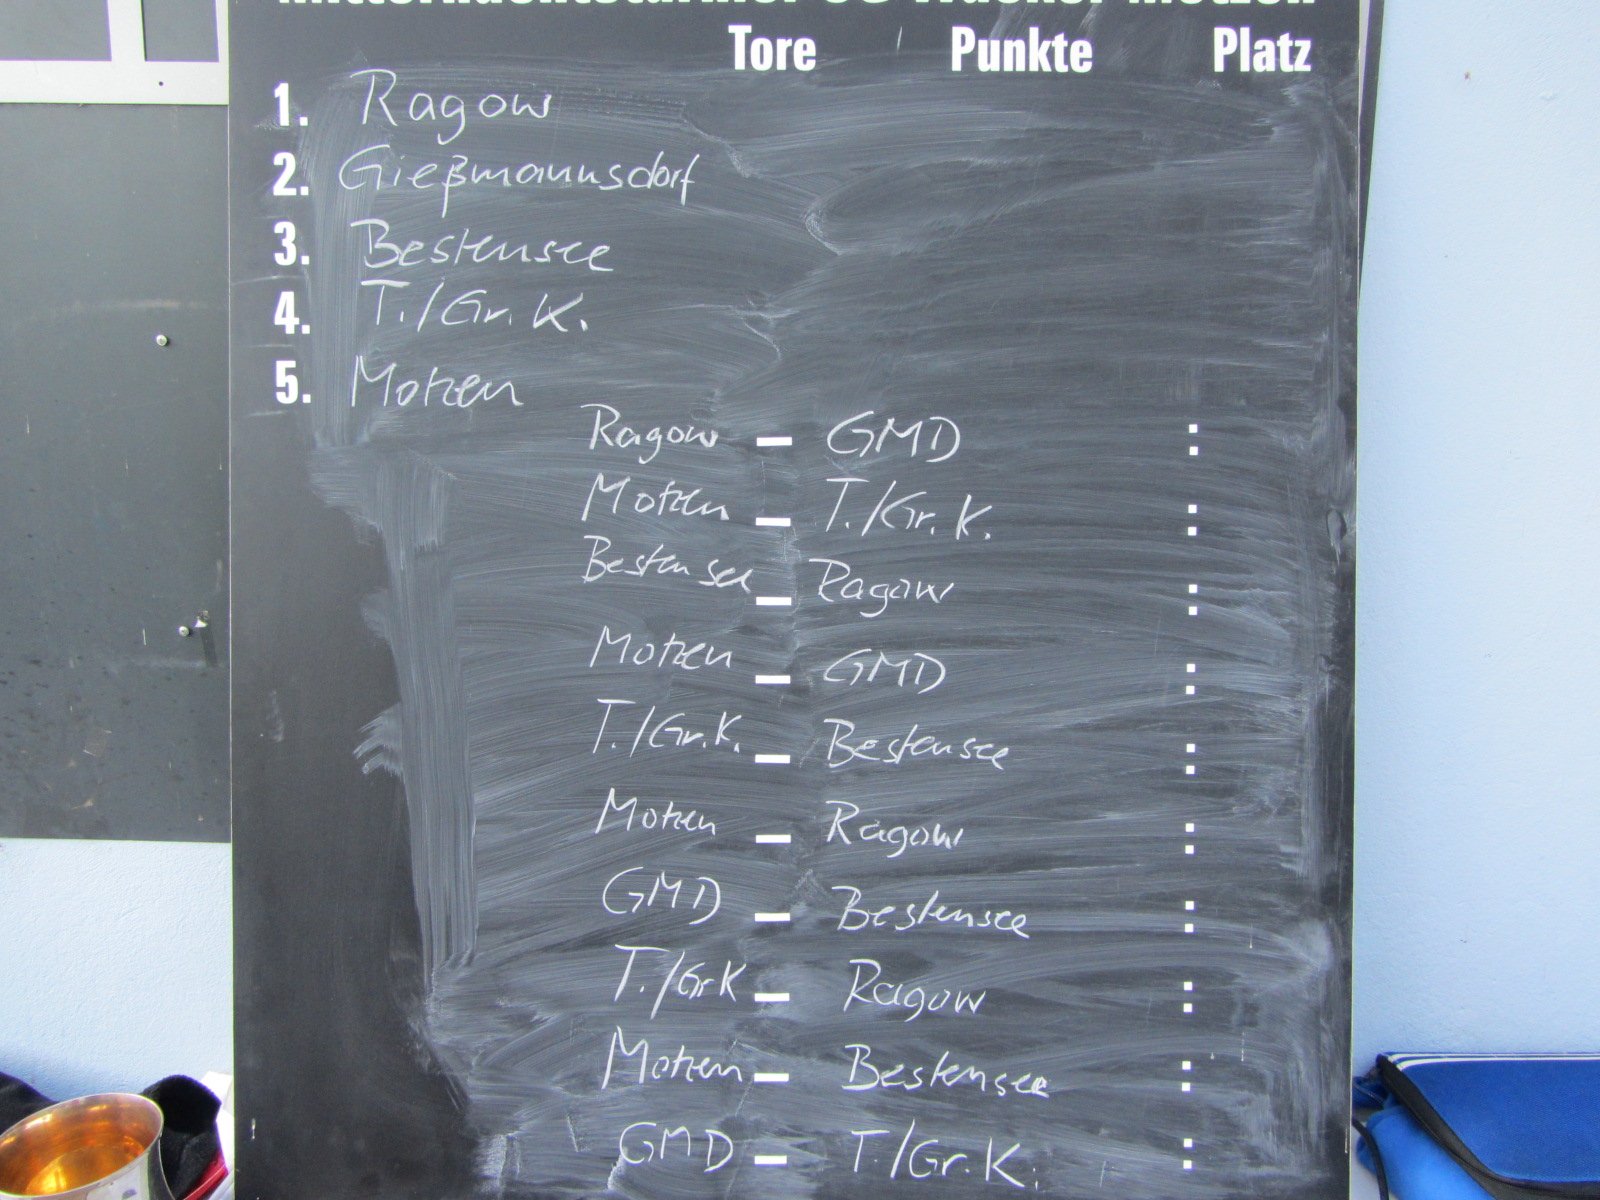 Mitternachtsstürmer SG Wacker Motzen
Tore Punkte Platz
1. Ragow
2. Gießmannsdorf
3. Bestensee
4. T./Gr. K.
5. Motzen
Ragow - GMD :
Motzen - T./Gr. K. :
Bestensee - Ragow :
Motzen - GMD :
T./Gr. K. - Bestensee :
Motzen - Ragow :
GMD - Bestensee :
T./Gr K - Ragow :
Motzen - Bestensee :
GMD - T./Gr. K. :